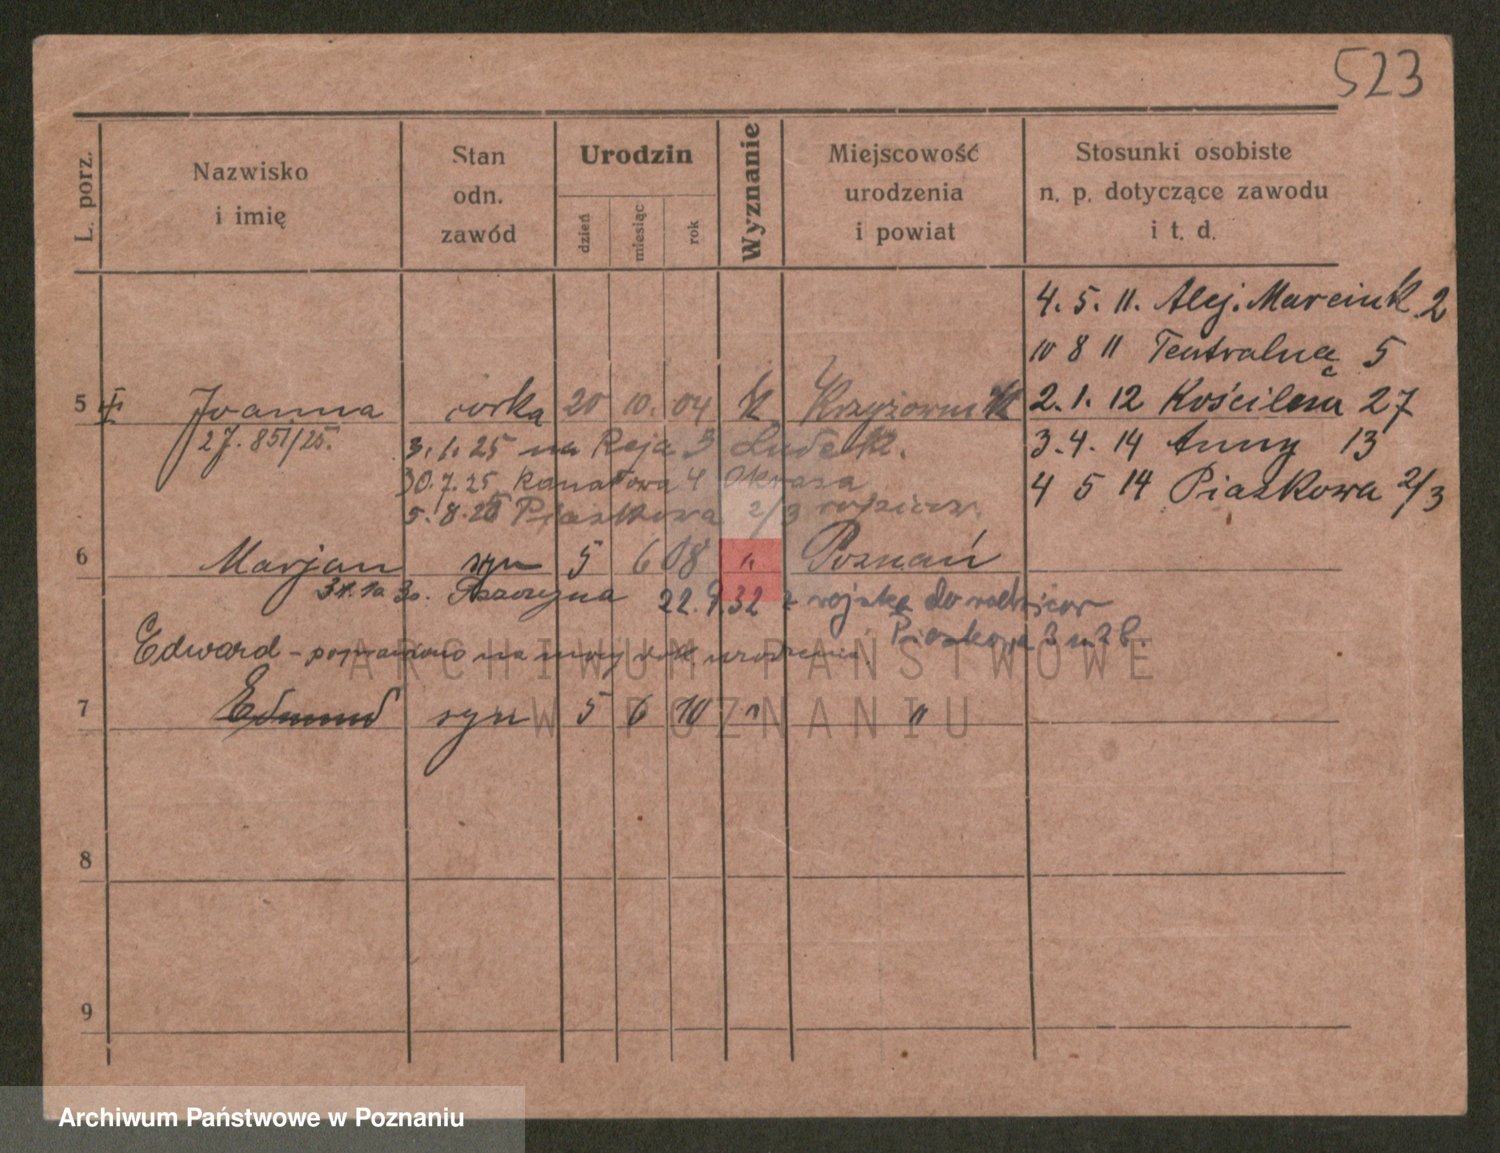 523
L. porz.
Nazwisko
i imię
Stan
odn.
zawód
Urodzin
dzień
miesiąc
rok
Wyznanie
Miejscowość
urodzenia
i powiat
Stosunki osobiste
n. p. dotyczące zawodu
i t. d.
4. 5. 11. Alej. Marcink. 2
10 8 11 Teatralna 5
5 Joanna córka 20 10. 04 K 2. 1. 12 27
27. 851/25. 3. 1. 25 na Reja 3 3. 4. 14 Anny 13
30. 7. 25 Kanałowa 4 4 5 14 Piaskowa 2/3
5. 8. 25 Piaskowa 2/3 rodziców
6 Marjan syn 5 6 08 " Poznań
22. 9. 32 z wojska do rodziców
Piaskowa
Edward – poprawiono na mocy urodzenia.
7 Edmund syn 5 6 10 " "
8
9
ARCHIWUM PAŃSTWOWE
W POZNANIU
Archiwum Państwowe w Poznaniu